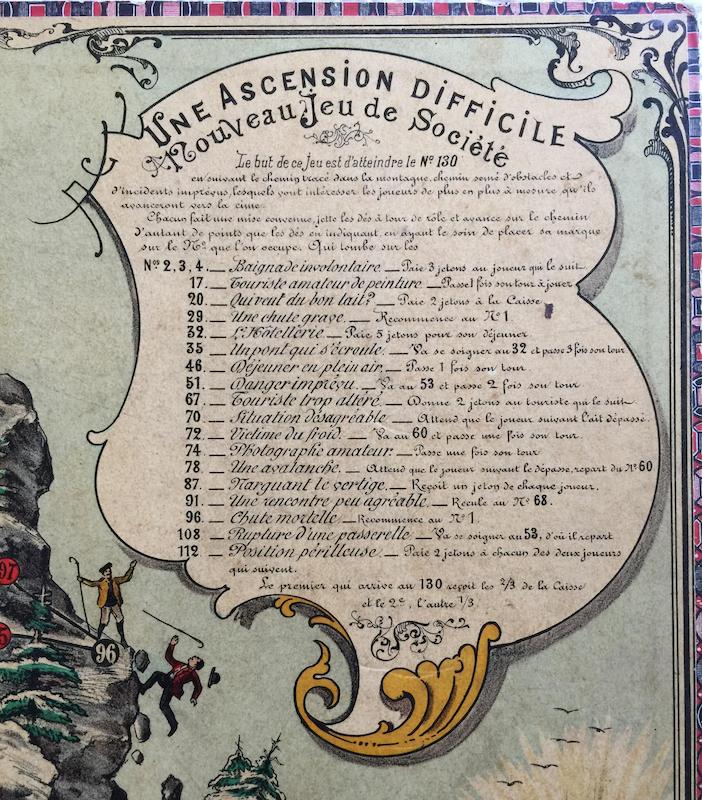 UNE ASCENSION DIFFICILE
Nouveau Jeu de Société
Le but de ce jeu est d'atteindre le Nº 130
en suivant le chemin tracé dans la montagne, chemin semé d'obstacles et
d'incidents imprévus, lesquels vont intéresser les joueurs de plus en plus à mesure qu'ils
avanceront vers la cime.
Chacun fait une mise convenue, jette les dés à tour de rôle et avance sur le chemin
d'autant de points que les dés en indiquent, en ayant le soin de placer sa marque
sur le Nº que l'on occupe. Qui tombe sur les
Nos 2, 3, 4. — Baignade involontaire — Paie 3 jetons au joueur qui le suit.
17. — Touriste amateur de peinture — Passe 1 fois son tour à jouer
20. — Qui veut du bon lait? — Paie 2 jetons à la Caisse
29. — Une chute grave. — Recommence au Nº 1.
32. — L'Hôtellerie — Paie 5 jetons pour son déjeuner
35 — Un pont qui s'écroule. — Va se soigner au 32 et passe 3 fois son tour
46. — Déjeuner en plein air. — Passe 1 fois son tour
51. — Danger imprévu. — Va au 53 et passe 2 fois son tour
67. — Touriste trop altéré. — Donne 2 jetons au touriste qui le suit.
70. — Situation désagréable — Attend que le joueur suivant l'ait dépassé.
72. — Victime du froid. — Va au 60 et passe une fois son tour
74 — Photographe amateur. — Passe une fois son tour
78 — Une avalanche. — Attend que le joueur suivant le dépasse, repart du Nº 60
87. — Narguant le vertige. — Reçoit un jeton de chaque joueur.
91. — Une rencontre peu agréable. — Recule au Nº 68.
96. — Chute mortelle — Recommence au Nº 1
108 — Rupture d'une passerelle — Va se soigner au 53, d'où il repart
112. — Position périlleuse. — Paie 2 jetons à chacun des deux joueurs
qui suivent.
Le premier qui arrive au 130 reçoit les 2/3 de la Caisse
et le 2e, l'autre 1/3
97
96